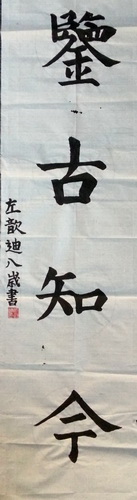 鑒古知今
左歆迪八歲書